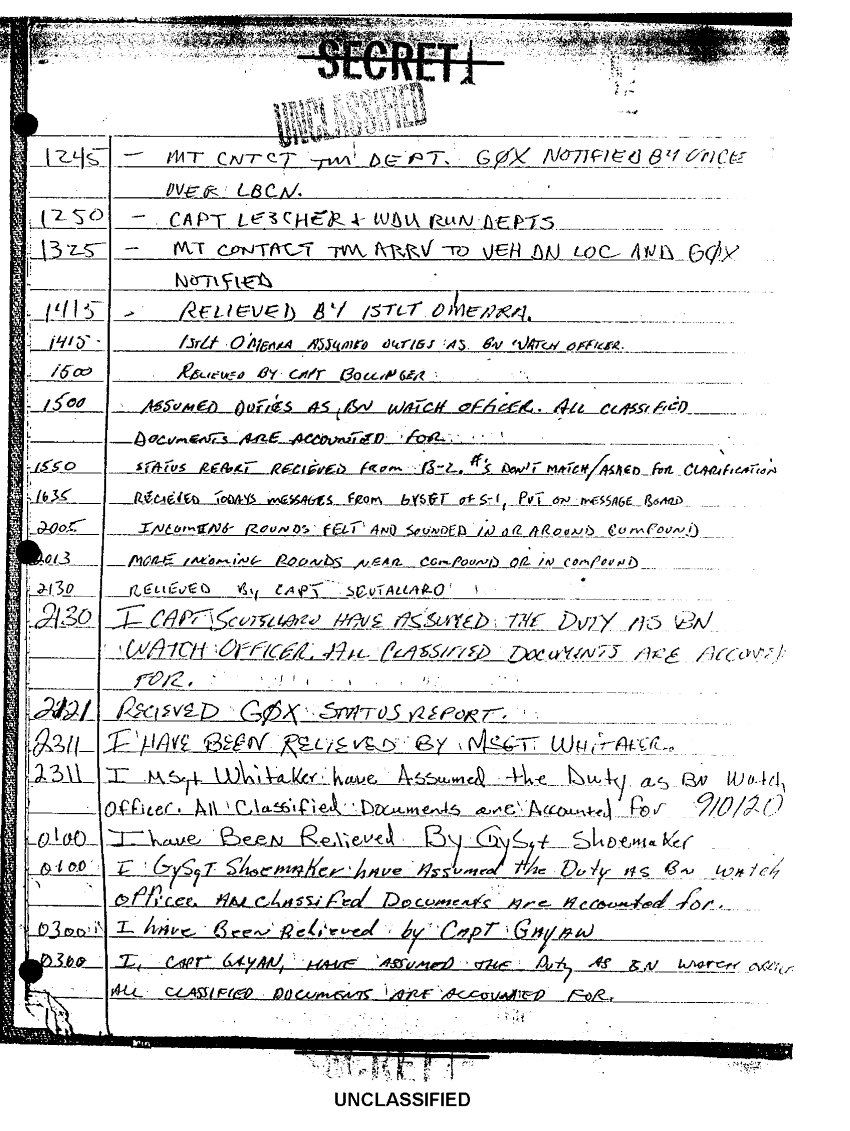 SECRET
UNCLASSIFIED
1245 - MT CNTCT TM DEPT. GØX NOTIFIED BY VOICE
OVER LBCN.
1250 - CAPT LERCHER + WDU RUN DEPTS
1325 - MT CONTACT TM ARRV TO VEH DN LOC AND GØX
NOTIFIED
1415 - RELIEVED BY 1STLT OMEARA.
1415 - 1STLT O'MEARA ASSUMED DUTIES AS BN WATCH OFFICER.
1500 RELIEVED BY CAPT BOLLINGER
1500 ASSUMED DUTIES AS BN WATCH OFFICER. ALL CLASSIFIED
DOCUMENTS ARE ACCOUNTED FOR
1550 STATUS REPORT RECIEVED FROM B-2. #'S DON'T MATCH/ASKED FOR CLARIFICATION
1635 RECIEVED TODAYS MESSAGES FROM GYSGT OF S-1, PUT ON MESSAGE BOARD
2005 INCOMING ROUNDS FELT AND SOUNDED IN OR AROUND COMPOUND
2013 MORE INCOMING ROUNDS NEAR COMPOUND OR IN COMPOUND
2130 RELIEVED BY CAPT SCUTALLARO
2130 I CAPT SCUTELLARO HAVE ASSUMED THE DUTY AS BN
WATCH OFFICER. ALL CLASSIFIED DOCUMENTS ARE ACCOUNT
FOR.
2121 RECIEVED GØX STATUS REPORT.
2311 I HAVE BEEN RELIEVED BY MSGT. WHITAKER.
2311 I MSgt Whitaker have Assumed the Duty as BN Watch
Officer. All Classified Documents are Accounted for 910120
0100 I have Been Relieved By GySgt Shoemaker
0100 I GySgT Shoemaker have Assumed the Duty As BN WATCh
Officer. All Classified Documents Are Accounted for.
0300 I have Been Relieved by CAPT GAYAN
0300 I, CAPT GAYAN, HAVE ASSUMED THE Duty AS BN WATCH OFFICER
ALL CLASSIFIED DOCUMENTS ARE ACCOUNTED FOR.
SECRET
UNCLASSIFIED